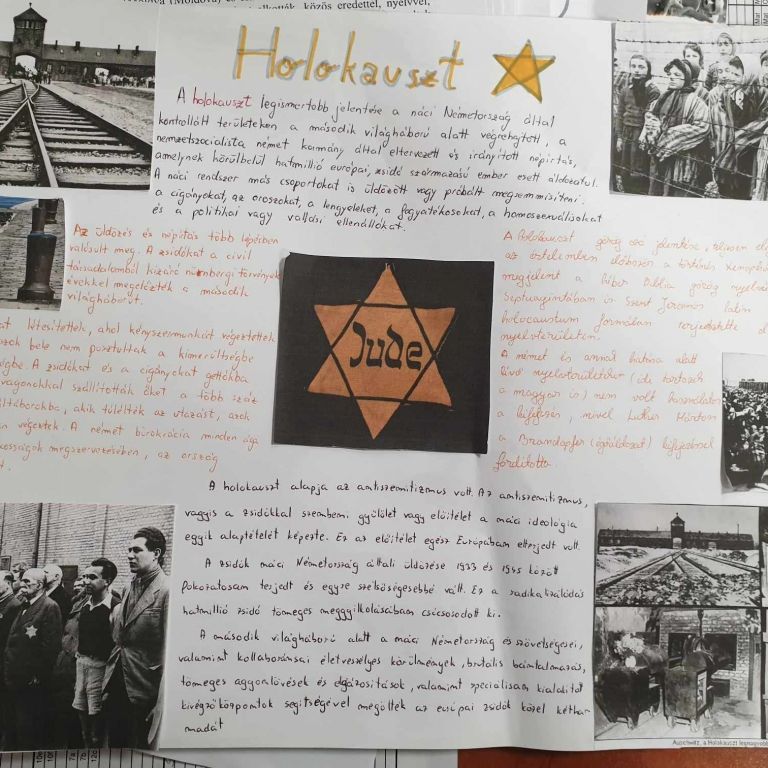 közös eredettel, nyelvvel,
Holokauszt
A holokauszt legismertebb jelentése a náci Németország által
kontrollált területeken a második világháború alatt végrehajtott, a
nemzetiszocialista német kormány által eltervezett és irányított népirtás,
amelynek körülbelül hatmillió európai, zsidó származású ember esett áldozatul.
A náci rendszer más csoportokat is üldözött vagy próbált megsemmisíteni:
a cigányokat, az oroszokat, a lengyeleket, a fogyatékosokat, a homoszexuálisokat
és a politikai vagy vallási ellenállókat.
Az üldözés és népirtás több lépésben
valósult meg. A zsidókat a civil
társadalomból kizáró nürnbergi törvények
évekkel megelőzték a második
világháborút.
létesítettek, ahol kényszermunkát végeztettek
bele nem pusztultak a kimerültségbe
A zsidókat és a cigányokat gettókba
vagonokkal szállították őket a több száz
akik túlélték az utazást, azok
végeztek. A német bürokrácia minden ága
megszervezésében, az ország
A holokauszt görög szó jelentése, teljesen
az értelemben először a történész
megjelent a Héber Biblia görög
Septuagintában is Szent Jeromos latin
holocaustum formában terjedtette
nyelvterületen.
A német és annak hatása alatt
lévő nyelvterületeken (ide tartozik
a magyar is) nem volt használatos
a kifejezés, mivel Luther Márton
a Brandopfer (égőáldozat) kifejezéssel
fordította.
Jude
A holokauszt alapja az antiszemitizmus volt. Az antiszemitizmus,
vagyis a zsidókkal szembeni gyűlölet vagy előítélet a náci ideológia
egyik alaptételét képezte. Ez az előítélet egész Európában elterjedt volt.
A zsidók náci Németország általi üldözése 1933 és 1945 között
fokozatosan terjedt és egyre szélsőségesebbé vált. Ez a radikalizálódás
hatmillió zsidó tömeges meggyilkolásában csúcsosodott ki.
A második világháború alatt a náci Németország és szövetségesei,
valamint kollaboránsai életveszélyes körülmények, brutális bántalmazás,
tömeges agyonlövések és elgázosítások, valamint speciálisan kialakított
kivégzőközpontok segítségével megölték az európai zsidók közel kéthar-
madát
Auschwitz, a Holokauszt